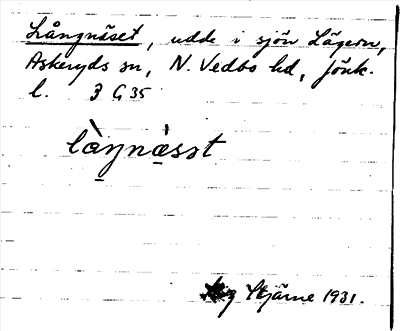 Långnäset, udde i sjön Lägern,
Askeryds sn, N. Vedbo hd, Jönk.
l. 3 G 35
là̱ŋnä̱̀sət
Stjärne 1931.